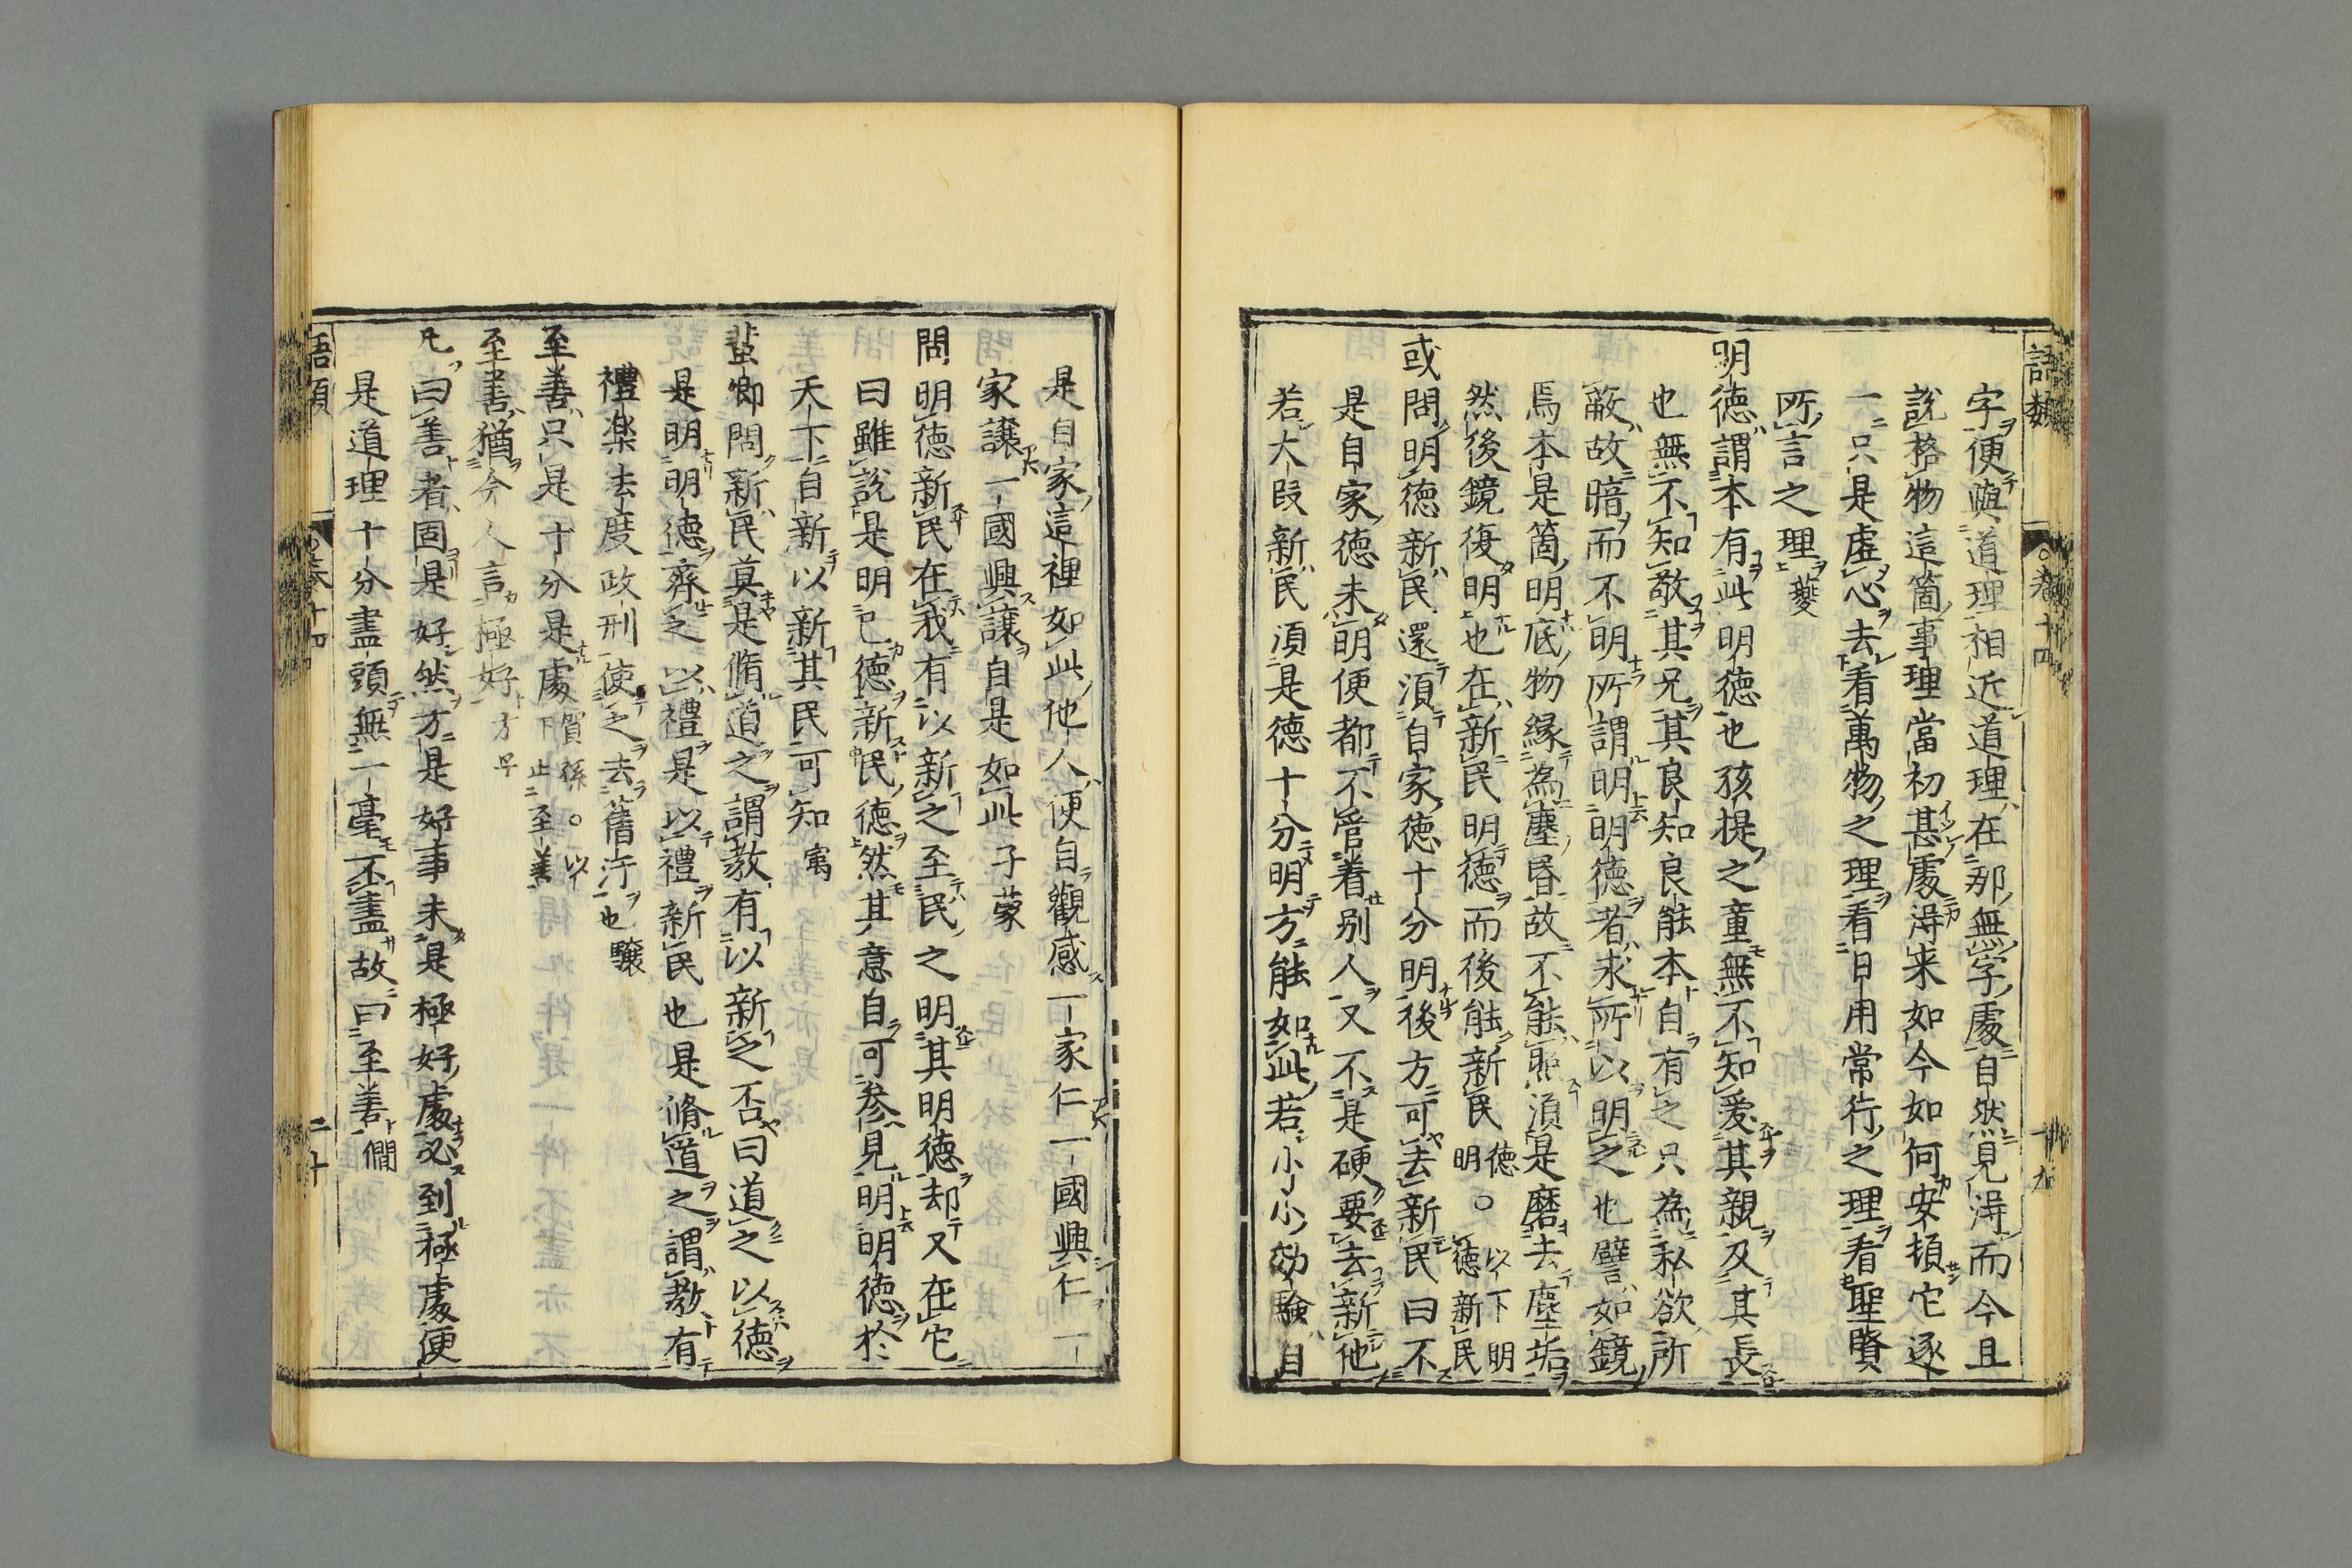 語類
卷十四
十九
字便與道理相近道理在那無字處自然見得而今且
說格物這箇事理當初甚處得来如今如何安頓它逐
一只是虚心去看萬物之理看日用常行之理看聖賢
所言之理 夔
明德謂本有此明德也孩提之童無不知愛其親及其長
也無不知敬其兄其良知良能本自有之只為私欲所
蔽故暗而不明所謂明明德者求所以明之也譬如鏡
焉本是箇明底物緣為塵昏故不能照須是磨去塵垢
然後鏡復明也在新民明德而後能新民 德明○以下明德新民
或問明德新民還須自家德十分明後方可去新民曰不
是自家德未明便都不管着别人又不是硬要去新他
若大段新民須是德十分明方能如此若小小効驗自
是自家這裡如此他人便自觀感一家仁一國興仁一
家讓一國興讓自是如此 子蒙
問明德新民在我有以新之至民之明其明德却又在它
曰雖說是明己德新民德然其意自可參見明明德於
天下自新以新其民可知 㝢
蜚卿問新民莫是脩道之謂教有以新之否曰道之以德
是明明德齊之以禮是以禮新民也是脩道之謂教有
禮楽法度政刑使之去舊汙也 驤
至善只是十分是處 賀孫○以下止至善
至善猶今人言極好 方子
凡曰善者固是好然方是好事未是極好處必到極處便
是道理十分盡頭無一毫不盡故曰至善 僩
語類
卷十四
二十